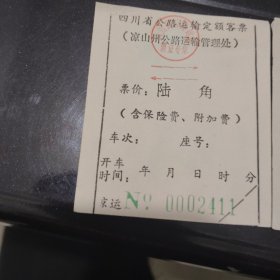 四川省公路运输定额客票
（凉山州公路运输管理处）
票价：陆 角
（含保险费、附加费）
车次： 座号：
开车
时间： 年 月 日 时 分
凉运 № 0002411